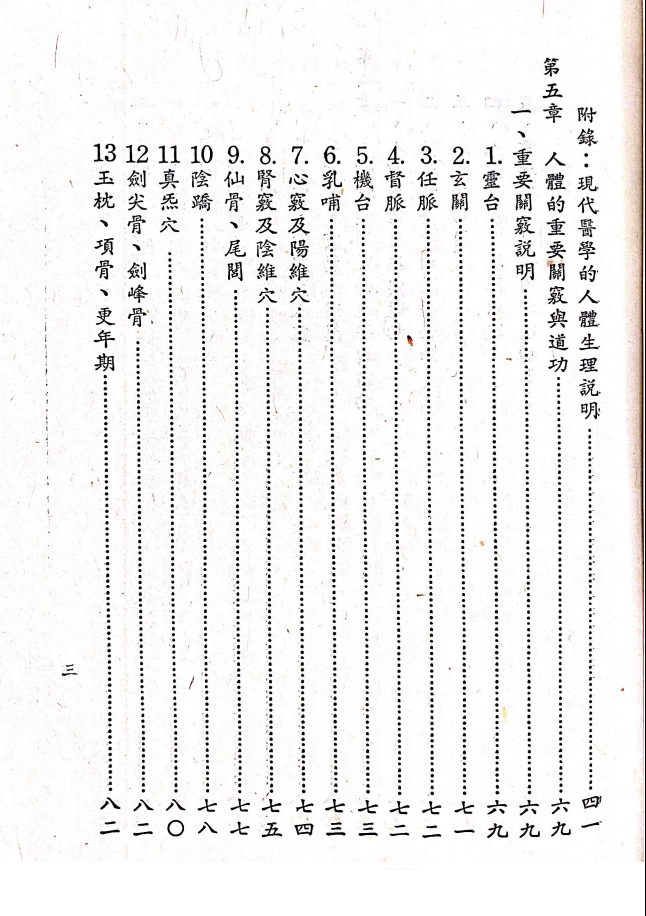 附錄：現代醫學的人體生理説明……四一
第五章　人體的重要關竅與道功……六九
一、重要關竅説明……六九
1.靈台……六九
2.玄關……七一
3.任脈……七二
4.督脈……七二
5.機台……七三
6.乳哺……七三
7.心竅及陽維穴……七四
8.腎竅及陰維穴……七五
9.仙骨、尾閭……七七
10陰蹻……七八
11真炁穴……八〇
12劍尖骨、劍峰骨……八二
13玉枕、項骨、更年期……八二
三